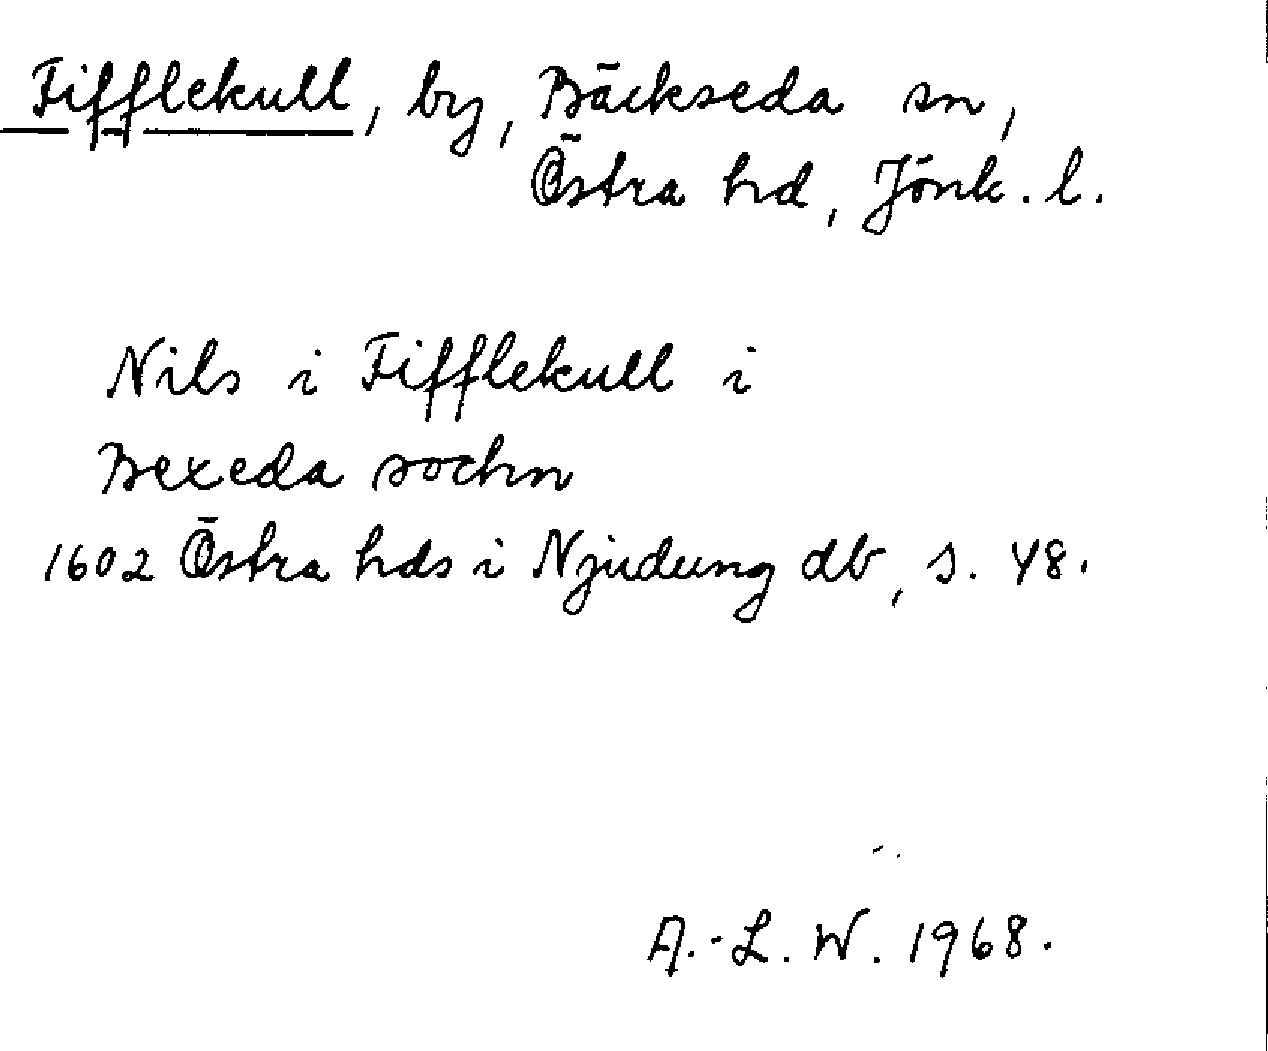 Fifflekull, by, Bäckseda sn,
Östra hd, Jönk. l.
Nils i Fifflekull i
Bexeda sochn
1602 Östra hds i Njudung db, s. 48.
A.-L. W. 1968.